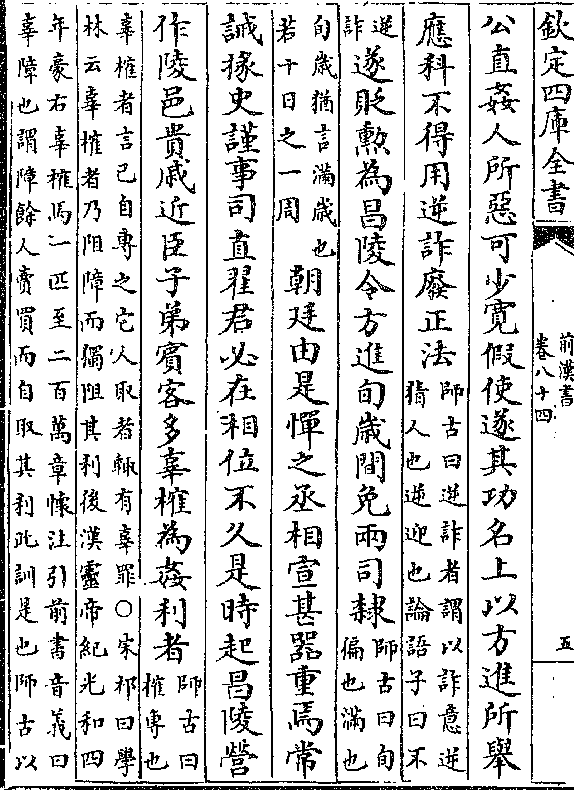 欽定四庫全書
前漢書
卷八十四
五
公直姦人所惡可少寛假使遂其功名上以方進所舉
應科不得用逆詐廢正法
師古曰逆詐者謂以詐意逆
猜人也逆迎也論語子曰不
逆
詐
遂貶勲為昌陵令方進旬歳間免兩司隸
師古曰旬
徧也滿也
旬歳猶言滿歳也
若十日之一周
朝廷由是憚之丞相宣甚器重焉常
誡掾史謹事司直翟君必在相位不久是時起昌陵營
作陵邑貴戚近臣子弟賓客多辜榷為姦利者
師古曰
榷専也
辜榷者言已自専之它人取者輒有辜罪○宋祁曰學
林云辜榷者乃阻障而獨阻其利後漢靈帝紀光和四
年豪右辜榷馬一匹至二百萬章懷注引前書音義曰
辜障也謂障餘人賣買而自取其利此訓是也師古以